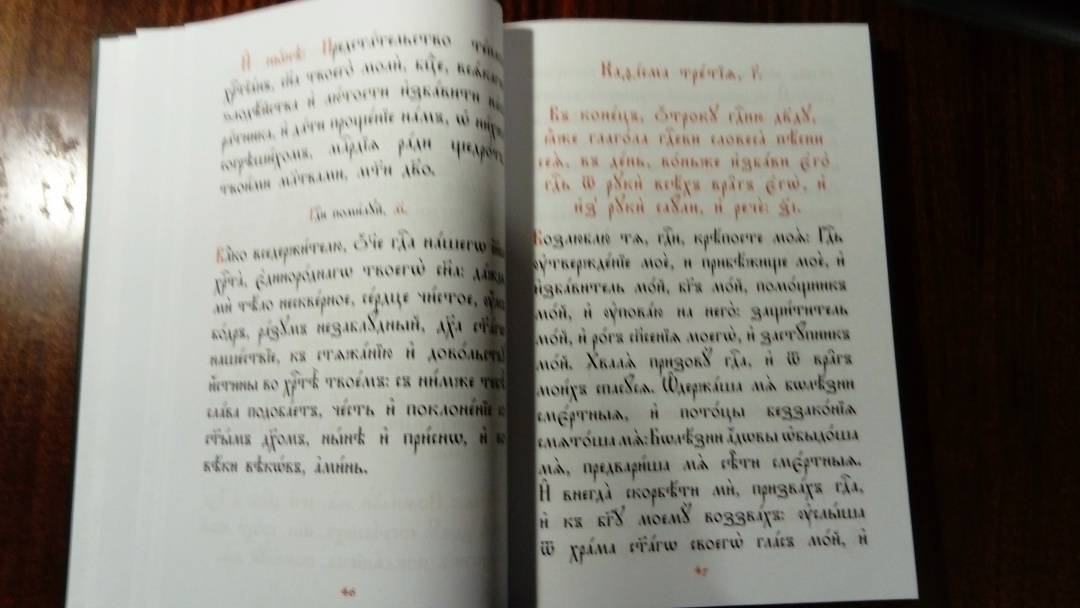 И҆ ны́нѣ: Предста́тельство
хрⷭ҇тїа́нъ, сн҃а твоего̀ молѝ, бцⷣе, всѧ́кагѡ
ѕлодѣ́йства и҆ лю́тости и҆зба́вити
ра́тника, и҆ да́ти проще́нїе на́мъ, ѡ҆ ни́хже
согрѣши́хомъ, млⷭ҇рдїѧ ра́ди щедро́тъ,
твои́ми мл҃твами, мт҃и дв҃о.
Гдⷭ҇и поми́лꙋй, м҃.
Влⷣко вседержи́телю, ѻ҆́ч҃е гдⷭ҇а на́шегѡ і҆и҃са
хрⷭ҇та̀, є҆диноро́днагѡ твоегѡ̀ сн҃а: да́ждь
мѝ тѣ́ло нескве́рное, се́рдце чи́стое, ᲂу҆́мъ
бо́дръ, ра́зꙋмъ незаблꙋ́дный, дх҃а ст҃а́гѡ
наше́ствїе, къ стѧжа́нїю и҆ дово́льствꙋ
и҆́стины во хрⷭ҇тѣ̀ твое́мъ: съ ни́мже тебѣ̀
сла́ва подоба́етъ, че́сть и҆ поклоне́нїе со
ст҃ы́мъ дх҃омъ, ны́нѣ и҆ при́снѡ, и҆ во
вѣ́ки вѣкѡ́въ, а҆ми́нь.
46
Каѳі́сма тре́тїѧ, г҃.
Въ коне́цъ, ѻ҆́трокꙋ гдⷭ҇ню дв҃дꙋ,
ꙗ҆̀же глаго́ла гдⷭ҇еви словеса̀ пѣ́сни
сеѧ̀, въ де́нь, во́ньже и҆зба́ви є҆го̀
гдⷭ҇ь ѿ рꙋкѝ всѣ́хъ вра̑гъ є҆гѡ̀, и҆
и҆з̾ рꙋкѝ саꙋ́ли, и҆ речѐ: з҃і.
Возлюблю́ тѧ, гдⷭ҇и, крѣ́посте моѧ̀: Гдⷭ҇ь
ᲂу҆твержде́нїе моѐ, и҆ прибѣ́жище моѐ, и҆
и҆зба́витель мо́й, бг҃ъ мо́й, помо́щникъ
мо́й, и҆ ᲂу҆пова́ю на него̀: защи́титель
мо́й, и҆ ро́гъ сп҃се́нїѧ моегѡ̀, и҆ застꙋ́пникъ
мо́й. Хвалѧ̀ призовꙋ̀ гдⷭ҇а, и҆ ѿ вра̑гъ
мои́хъ спасꙋ́сѧ. Ѡ҆держа́ша мѧ̀ бѡлѣ́зни
смє́ртныѧ, и҆ пото́цы беззако́нїѧ
смѧто́ша мѧ̀: Бѡлѣ́зни а҆́дѡвы ѡ҆быдо́ша
мѧ̀, предвари́ша мѧ̀ сѣ̑ти смє́ртныѧ.
И҆ внегда̀ скорбѣ́ти мѝ, призва́хъ гдⷭ҇а,
и҆ къ бг҃ꙋ моемꙋ̀ воззва́хъ: ᲂу҆слы́ша
ѿ хра́ма ст҃а́гѡ своегѡ̀ гла́съ мо́й, и҆
47